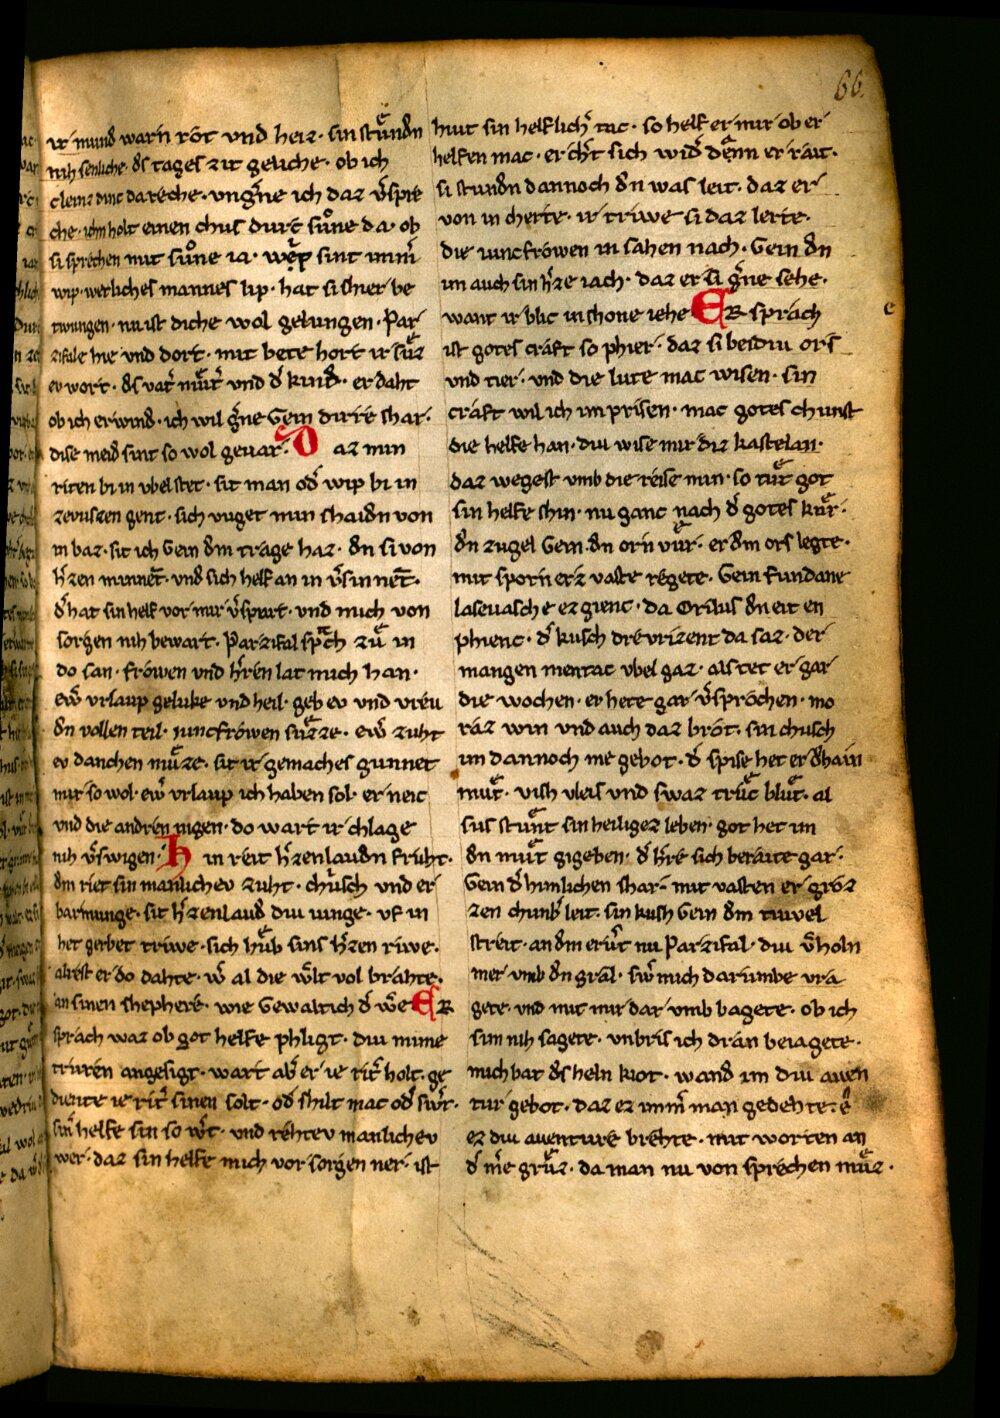 66
ir mund warn rot vnd heiz · sin stuͤndn
nih senliche · ds tages zit geliche · ob ich
cleiniz dinc dareche · vngn̄e ich daz v̄spre
che · ichn holt einen chus durch suͦne da · ob
si sprechen mit suͦne ia · wep sint imm̄
wip · werliches mannes lip · hat si shier be
twungen · mist diche wol gelungen · Par
zifale hie vnd dort · mit bete hort ir suͤz
ev wort · ds vat̄ muͤt̄ vnd d̄ kind · er daht
ob ich erwind · ich wil gn̄e Gein dirre shar ·
dise meid sint so wol gevar · D az min
riten bi in vbel stet · sit man od̄ wip bi in
zevuszen gent · sich vuget min shaidn von
in baz · sit ich Gein dm trage haz · dn si von
h̄zen minnet · vnd sich helf an in v̄sinnet ·
d̄ hat sin helf vor mir v̄spart · vnd mich von
sorgen nih bewart · Parzifal sp̄ch zuͤ in
do san · frowen vnd h̄ren lat mich han ·
ew̄ vrlaup geluke vnd heil · geb ev vnd vreu
dn vollen teil · iuncfrowen suͤzze · ew̄ zuht
ev danchen muͤze · sit ir gemaches gunnet
mir so wol · ew̄ vrlaup ich haben sol · er neic
vnd die andren nigen · do wart ir chlage
nih v̄swigen · H in reit h̄zenlaudn fruht ·
dm riet sin manlichev zuht · chusch vnd er
barmunge · sit h̄zenlaud diu iunge · vf in
het gerbet triwe · sich huͤb sins h̄zen riwe ·
alrest er do dahte · w̄ al die w̄lt vol brahte ·
an sinen shephere · wie Gewaltich d̄ w̄e ER
sprach waz ob got helfe phligt · diu mime
truren angesigt · wart ab̄ er ie rit̄ holt · ge
diente ie rit̄ sinen solt · od̄ shilt mac od̄ sw̄t ·
sin̄ helfe sin so w̄t · vnd rehtev manlichev
wer · daz sin helfe mich vor sorgen ner · ist
hiut sin helflich̄ tac · so helf er mir ob er
helfen mac · er ch̄t sich wid̄ denn er rait ·
si stundn dannoch dn was leit · daz er
von in cherte · ir triwe si daz lerte ·
die iuncfrowen in sahen nach · Gein dn
im auch sin h̄ze iach · daz er si gn̄e sehe ·
want ir blic in shone iehe ER sprach
ist gotes craft so phier · daz si beidiu ors
vnd tier · vnd die lute mac wisen · sin
craft wil ich im prisen · mac gotes chunst
die helfe han · diu wise mir diz kastelan ·
daz wegest vmb die reise min · so tuͤt got
sin helfe shin · nu ganc nach d̄ gotes kuͤr ·
dn zugel Gein dn orn vuͤr · er dm ors legte ·
mit sporn erz vaste regete · Gein fundane
lasevasche ez gienc · da Orilus dn eit en
phienc · d̄ kusch drevrizent da saz · der
mangen mentac vbel gaz · als tet er gar
die wochen · er hete gar v̄sprochen · mo
raz win vnd auch daz brot · sin chusch
im dannoch me gebot · d̄ spise het er dhain
muͤt · vish vleis vnd swaz truͤc bluͤt · al
sus stuͤnt sin heiligez leben · got het im
dn muͤt gigeben · d̄ h̄re sich beraite gar ·
Gein d̄ himlichen shar · mit vasten er groz
zen chumb̄ leit · sin kush Gein dm tiuvel
streit · an dm erv̄t nu Parzifal · diu v̄holn
mer vmb dn gral · sw̄ mich dar vmbe vra
gete · vnd mit mir dar vmb bagete · ob ich
sim nih sagete · vnbris ich dran beiagete ·
mich bat ds heln kiot · wand im diu auen
tur gebot · daz ez imm̄ man gedehte · e
ez diu auenture brehte · mit worten an
d̄ m̄e gruͤz · da man nu von sprechen muͤz ·
e